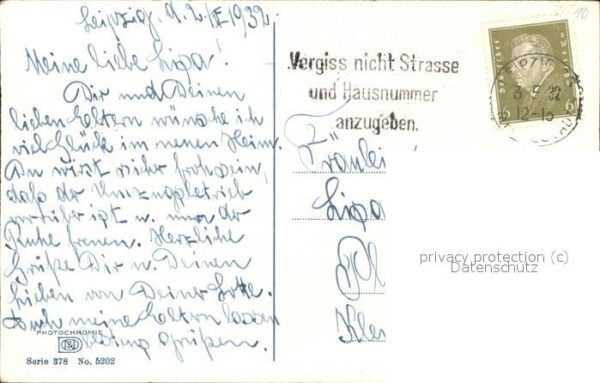 Leipzig, d. 2./V. 1932
Meine liebe Lisa!
Dir und Deinen
lieben Eltern wünsche ich
viel Glück im neuen Heim.
Du wirst sicher froh sein,
daß der Umzugsbetrieb
vorrüber ist u. nun der
Ruhe freuen. Herzliche
Grüße Dir u. Deinen
Lieben von Deiner Lotte.
Auch meine Eltern lassen
grüßen.
PHOTOCHROMIE
Serie 378 No. 5202
Vergiss nicht Strasse
und Hausnummer
anzugeben.
6 6
LEIPZIG
3.5.32
12-15
Fräulei
Lisa
privacy protection (c)
Datenschutz